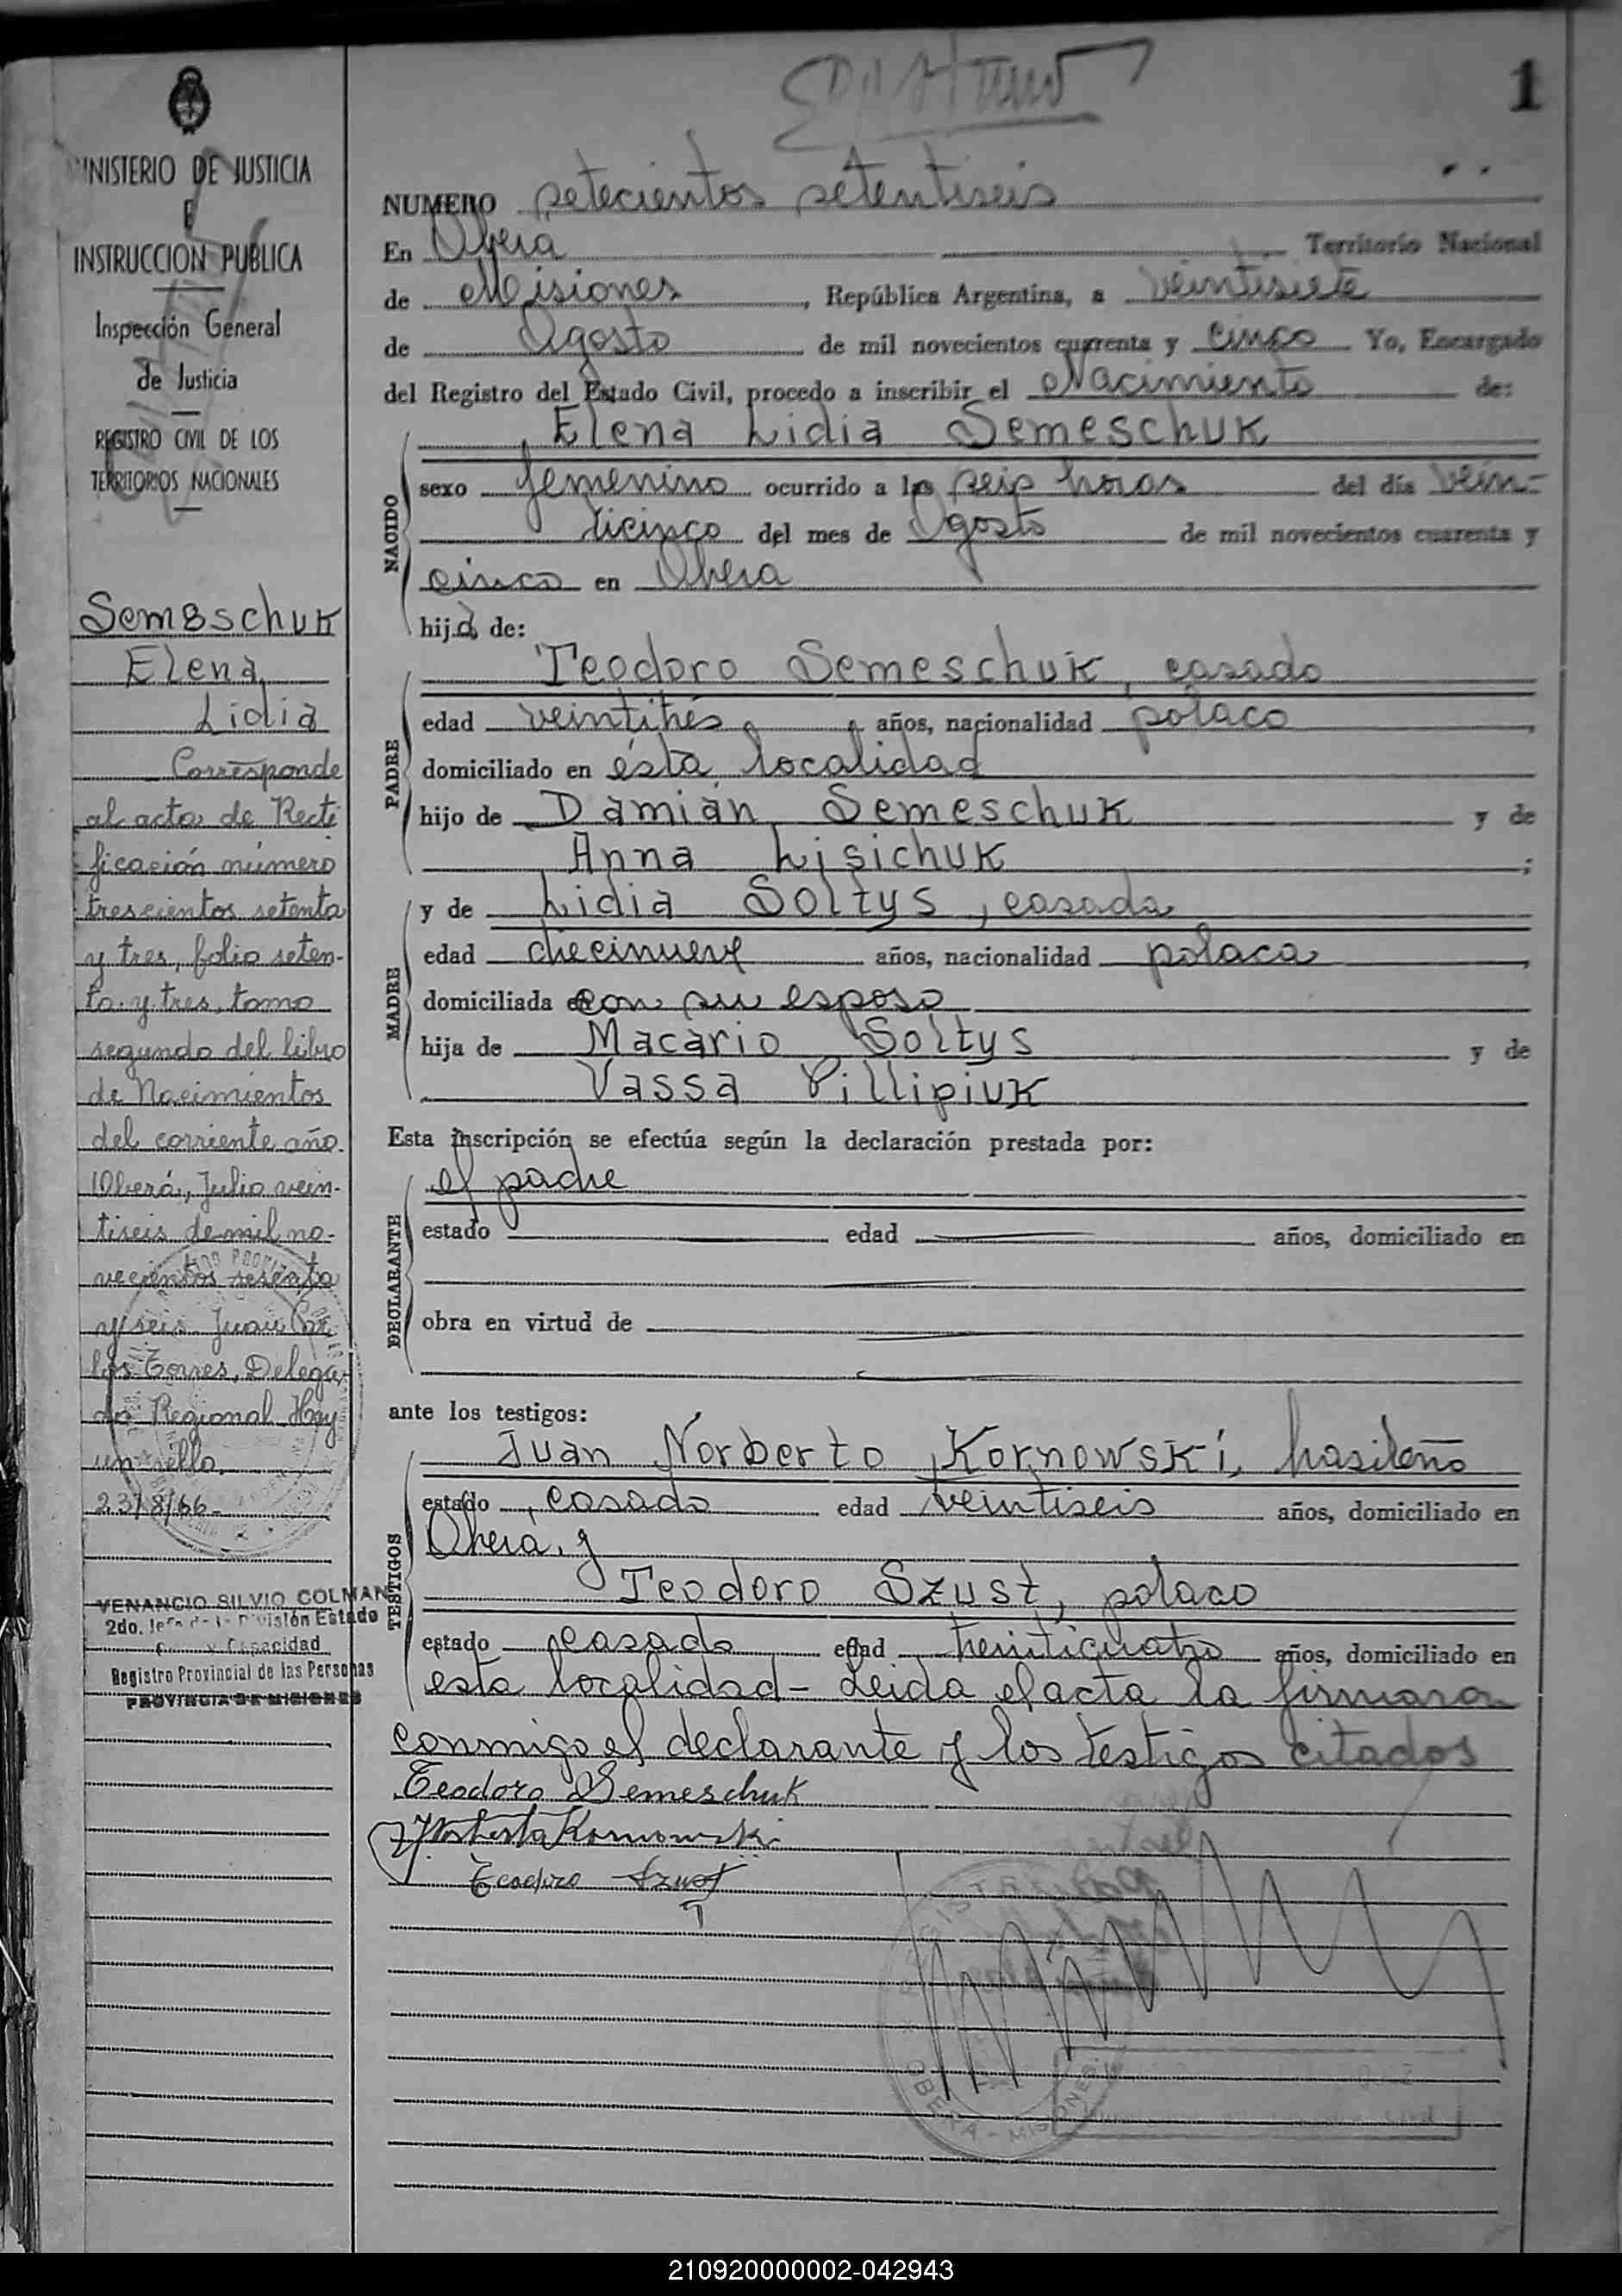 1
MINISTERIO DE JUSTICIA
E
INSTRUCCION PUBLICA
Inspección General
de Justicia
REGISTRO CIVIL DE LOS
TERRITORIOS NACIONALES
Semeschuk
Elena
Lidia
Corresponde
al acta de Recti
ficación número
trescientos setenta
y tres, folio seten-
ta y tres, tomo
segundo del libro
de Nacimientos
del corriente año.
Oberá, Julio vein-
tiseis de mil no-
vecientos sesenta
y seis Juan Car
los Torres, Delega
do Regional Hay
un sello.
23/8/66-
VENANCIO SILVIO COLMAN
2do. Jefe de la División Estado
y Capacidad
Registro Provincial de las Personas
PROVINCIA DE MISIONES
NUMERO setecientos setentiseis
En Oberá Territorio Nacional
de Misiones, República Argentina, a veintisiete
de Agosto de mil novecientos cuarenta y cinco Yo, Encargado
del Registro del Estado Civil, procedo a inscribir el Nacimiento de:
NACIDO
Elena Lidia Semeschuk
sexo femenino ocurrido a las seis horas del día vein-
ticinco del mes de Agosto de mil novecientos cuarenta y
cinco en Obera
hija de:
PADRE
Teodoro Semeschuk, casado
edad veintitrés años, nacionalidad polaco,
domiciliado en ésta localidad
hijo de Damián Semeschuk y de
Anna Lisichuk;
MADRE
y de Lidia Soltys, casada
edad diecinueve años, nacionalidad polaca,
domiciliada en con su esposo
hija de Macario Soltys y de
Vassa Pillipiuk
Esta inscripción se efectúa según la declaración prestada por:
DECLARANTE
el padre
estado edad años, domiciliado en
obra en virtud de
ante los testigos:
TESTIGOS
Juan Norberto Kornowski, brasileño
estado casado edad veintiseis años, domiciliado en
Obera, y
Teodoro Szust, polaco
estado casado edad treinticuatro años, domiciliado en
esta localidad- Leida el acta la firmaron
conmigo el declarante y los testigos citados
Teodoro Semeschuk
J Norberto Kornowski
Teodoro Szust
OBERA - MISIONES
210920000002-042943